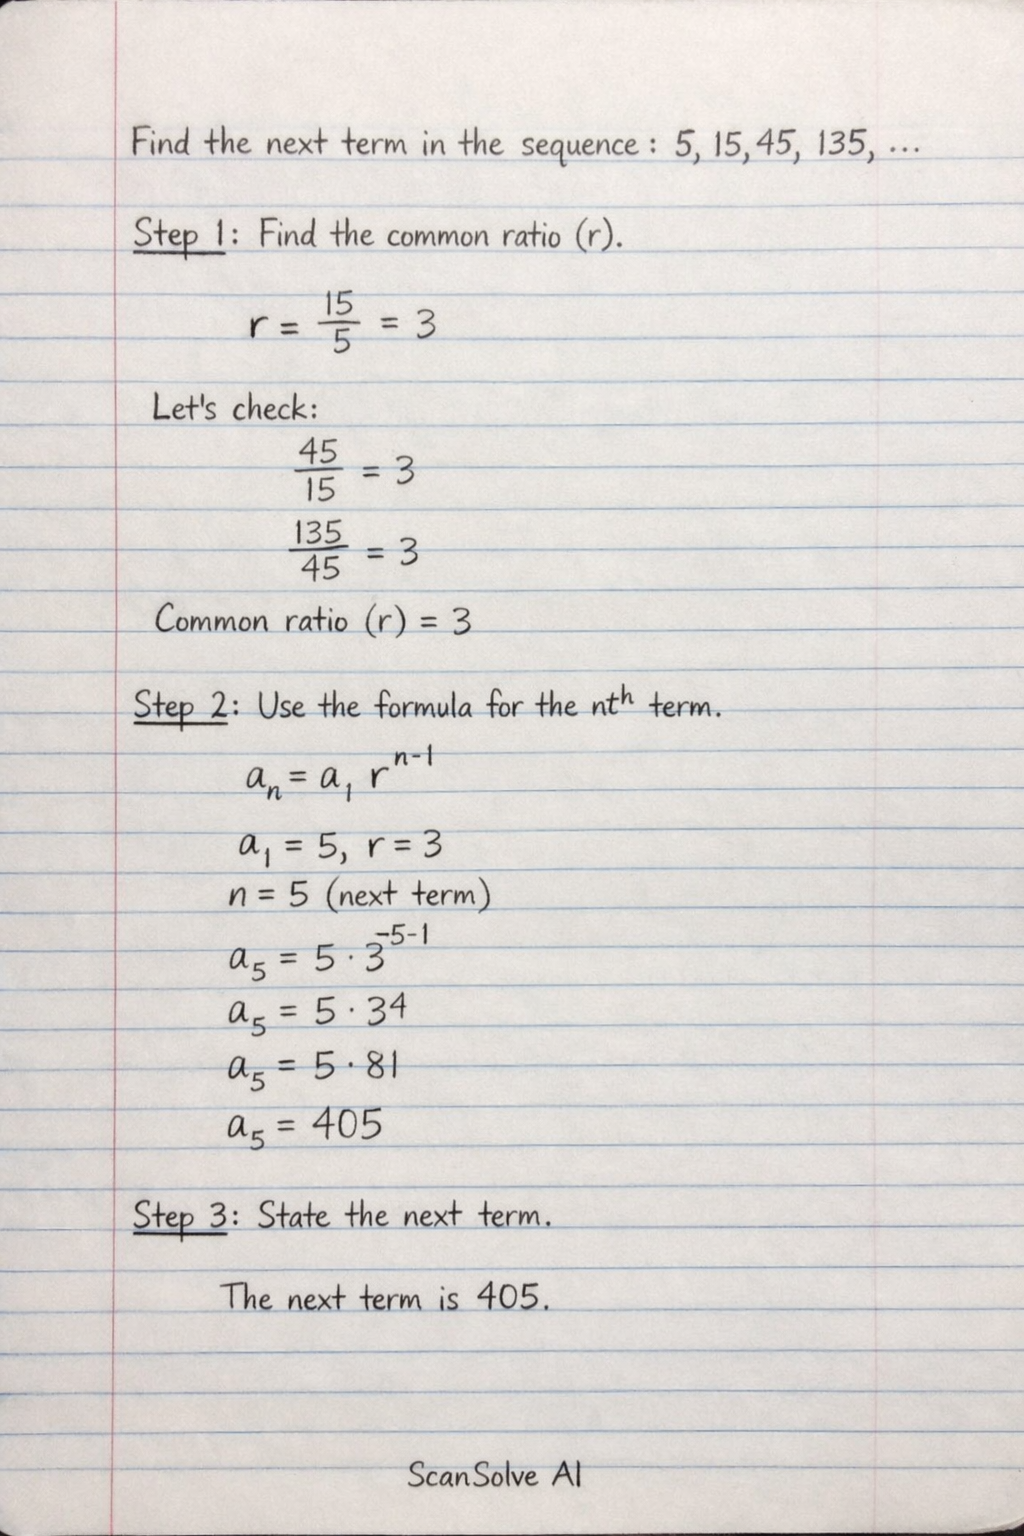 Find the next term in the sequence : 5, 15, 45, 135, ...
Step 1: Find the common ratio (r).
r = 15/5 = 3
Let's check:
45/15 = 3
135/45 = 3
Common ratio (r) = 3
Step 2: Use the formula for the nᵗʰ term.
aₙ = a₁ rⁿ⁻¹
a₁ = 5, r = 3
n = 5 (next term)
a₅ = 5 · 3⁻⁵⁻¹
a₅ = 5 · 34
a₅ = 5 · 81
a₅ = 405
Step 3: State the next term.
The next term is 405.
ScanSolve AI